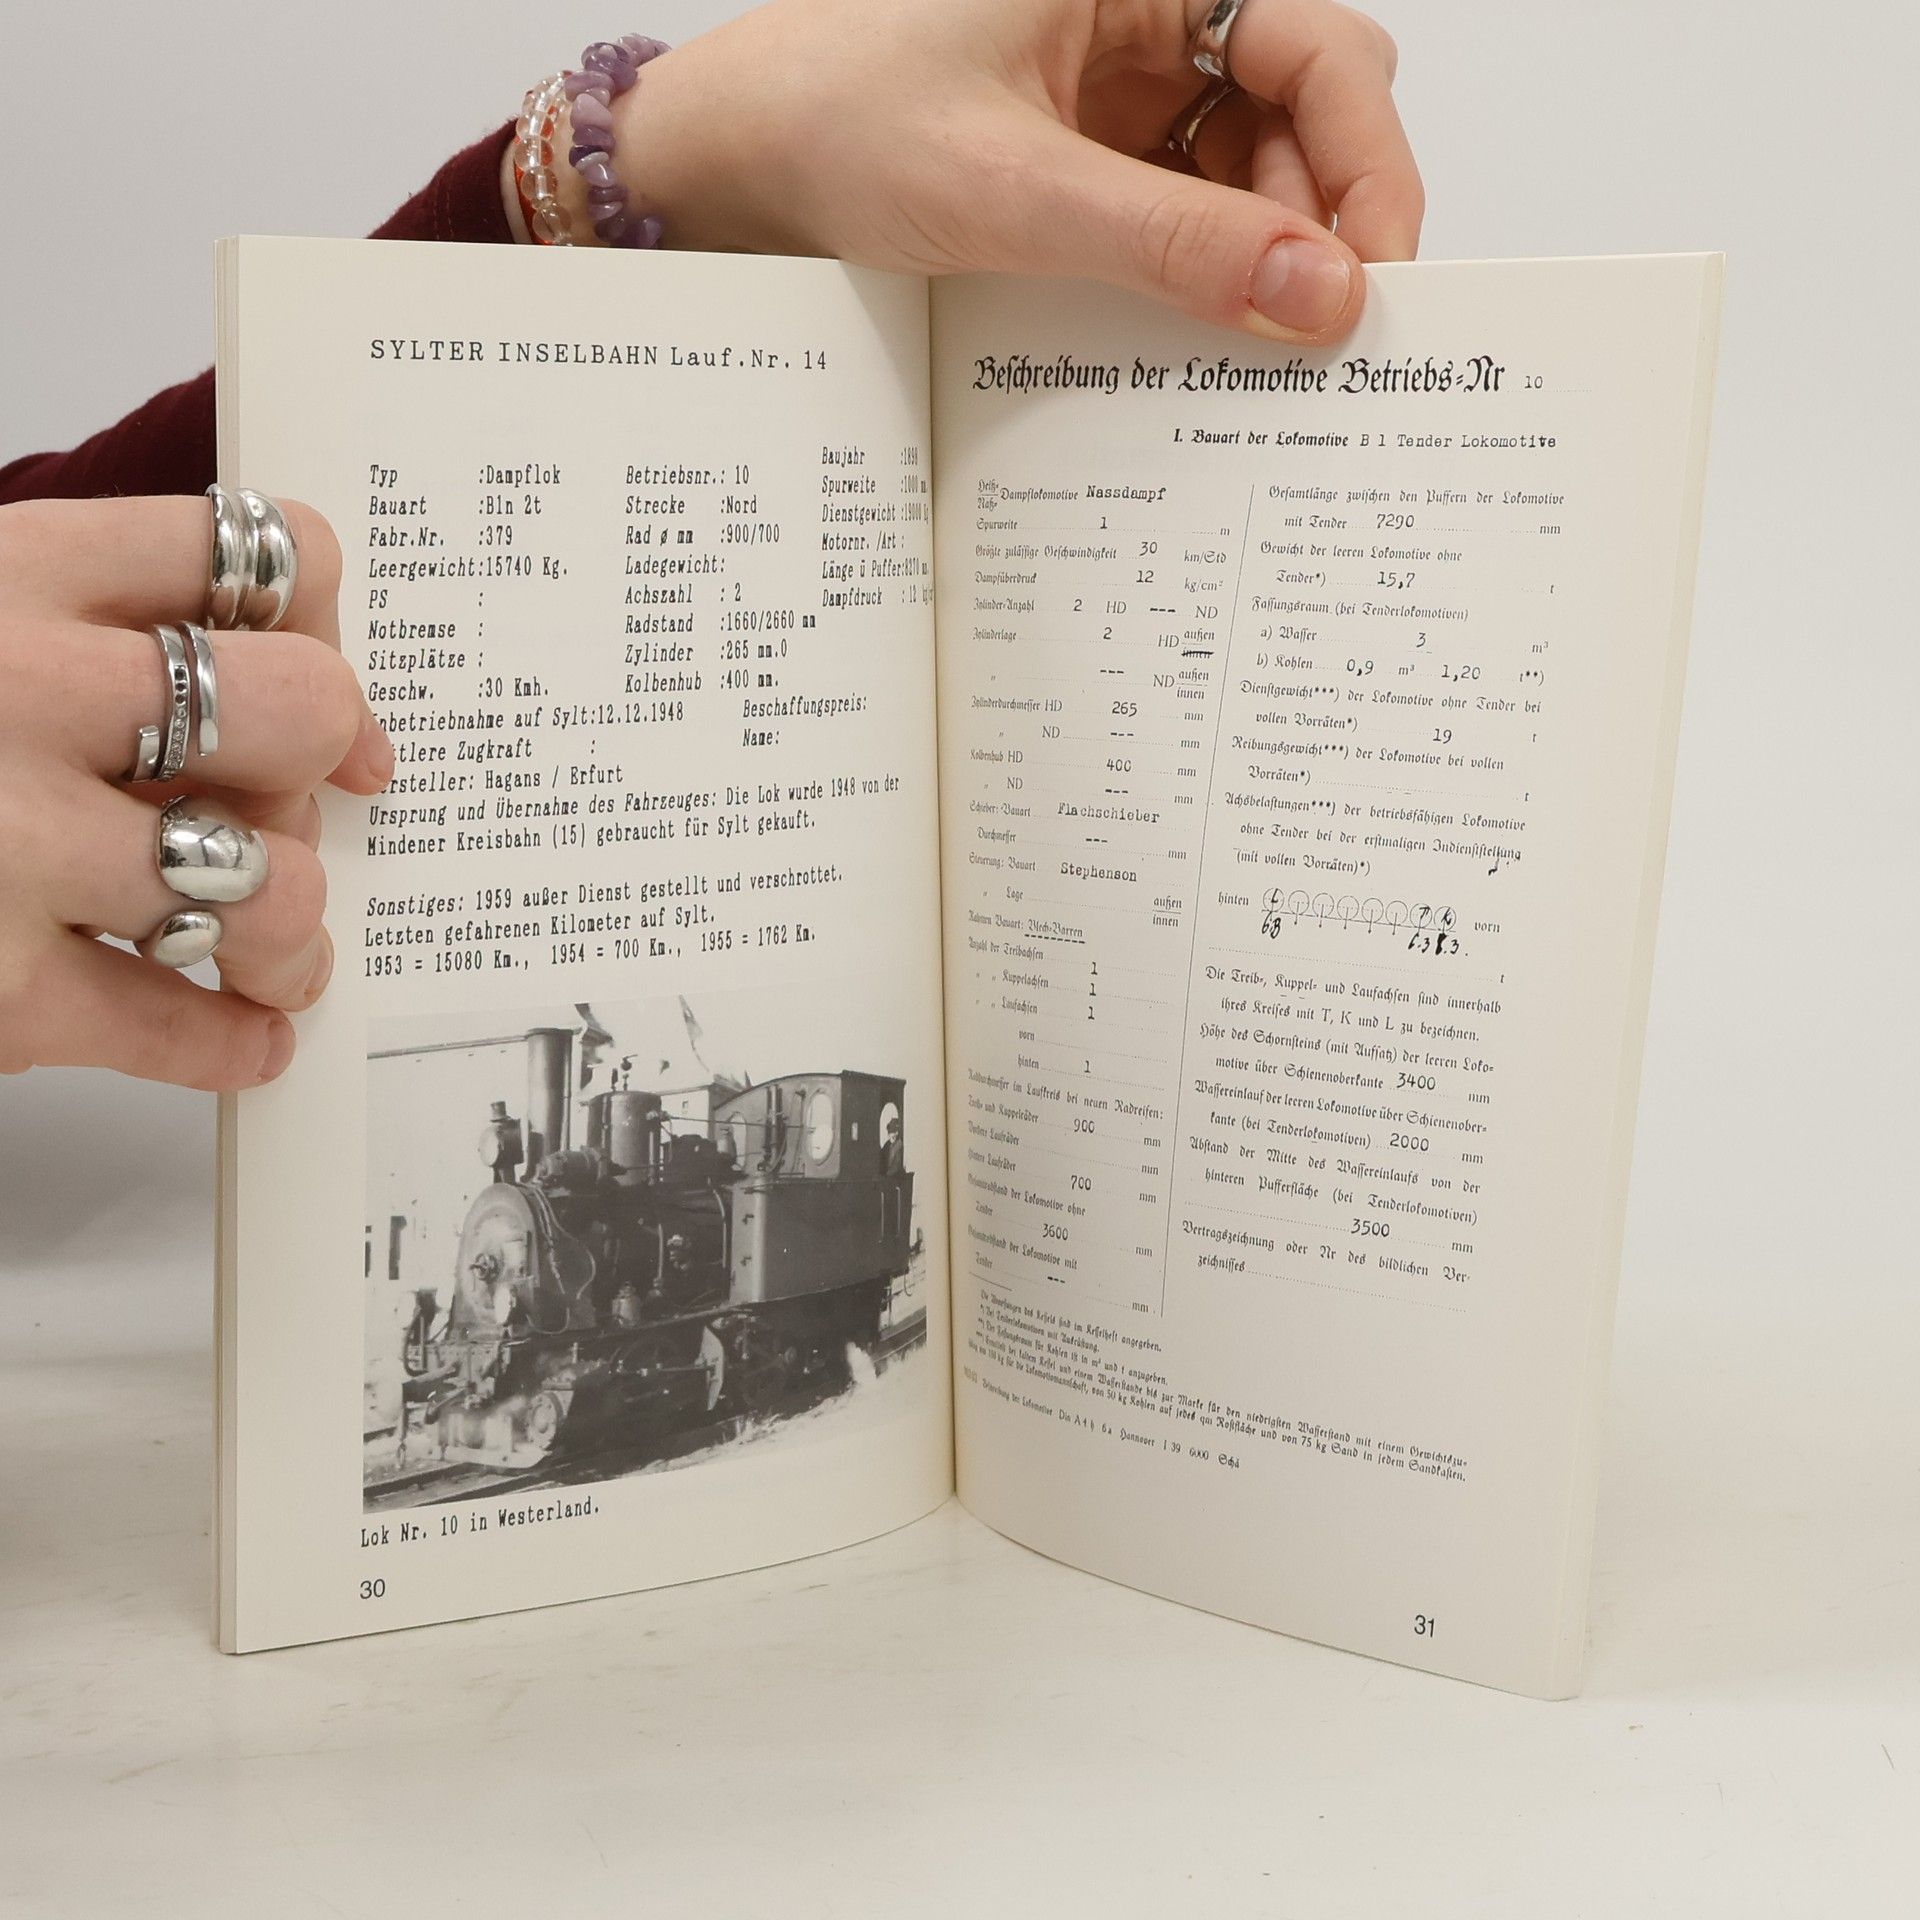 SYLTER INSELBAHN Lauf.Nr. 14
Typ :Dampflok Betriebsnr.: 10 Baujahr :1898
Bauart :B1n 2t Strecke :Nord Spurweite :1000 m
Fabr.Nr. :379 Rad ø mm :900/700 Dienstgewicht
Leergewicht:15740 Kg. Ladegewicht: Motornr. /Art :
PS : Achszahl : 2 Länge ü Puffer:
Notbremse : Radstand :1660/2660 mm Dampfdruck : 12
Sitzplätze : Zylinder :265 mm.0
Geschw. :30 Kmh. Kolbenhub :400 mm.
nbetriebnahme auf Sylt:12.12.1948 Beschaffungspreis:
ttlere Zugkraft : Name:
ersteller: Hagans / Erfurt
Ursprung und Übernahme des Fahrzeuges: Die Lok wurde 1948 von der
Mindener Kreisbahn (15) gebraucht für Sylt gekauft.
Sonstiges: 1959 außer Dienst gestellt und verschrottet.
Letzten gefahrenen Kilometer auf Sylt.
1953 = 15080 Km., 1954 = 700 Km., 1955 = 1762 Km.
Lok Nr. 10 in Westerland.
30
Beschreibung der Lokomotive Betriebs-Nr 10
I. Bauart der Lokomotive B 1 Tender Lokomotive
Heiß-
Naß- Dampflokomotive Nassdampf
Spurweite 1 m
Größte zulässige Geschwindigkeit 30 km/Std
Dampfüberdruck 12 kg/cm²
Zylinder-Anzahl 2 HD --- ND
Zylinderlage 2 HD außen
innen
" --- ND außen
innen
Zylinderdurchmesser HD 265 mm
" ND --- mm
Kolbenhub HD 400 mm
" ND --- mm
Schieber: Bauart Flachschieber
Durchmesser --- mm
Steuerung: Bauart Stephenson
" Lage außen
innen
Rahmen Bauart: Blech-Barren
Anzahl der Treibachsen 1
" " Kuppelachsen 1
" " Laufachsen 1
vorn
hinten 1
Raddurchmesser im Laufkreis bei neuen Radreifen:
Treib- und Kuppelräder 900 mm
Vordere Laufräder mm
Hintere Laufräder 700 mm
Gesamtradstand der Lokomotive ohne
Tender 3600 mm
Gesamtradstand der Lokomotive mit
Tender --- mm
Gesamtlänge zwischen den Puffern der Lokomotive
mit Tender 7290 mm
Gewicht der leeren Lokomotive ohne
Tender*) 15,7 t
Fassungsraum (bei Tenderlokomotiven)
a) Wasser 3 m³
b) Kohlen 0,9 m³ 1,20 t**)
Dienstgewicht***) der Lokomotive ohne Tender bei
vollen Vorräten*) 19 t
Reibungsgewicht***) der Lokomotive bei vollen
Vorräten*) t
Achsbelastungen***) der betriebsfähigen Lokomotive
ohne Tender bei der erstmaligen Indienststellung
(mit vollen Vorräten)*)
hinten L T K vorn
6.3
t
Die Treib-, Kuppel- und Laufachsen sind innerhalb
ihres Kreises mit T, K und L zu bezeichnen.
Höhe des Schornsteins (mit Aufsatz) der leeren Loko-
motive über Schienenoberkante 3400 mm
Wassereinlauf der leeren Lokomotive über Schienenober-
kante (bei Tenderlokomotiven) 2000 mm
Abstand der Mitte des Wassereinlaufs von der
hinteren Pufferfläche (bei Tenderlokomotiven)
3500 mm
Vertragszeichnung oder Nr des bildlichen Ver-
zeichnisses
Die Abmessungen des Kessels sind im Kesselheft angegeben.
*) Bei Tenderlokomotiven mit Ausrüstung.
**) Der Fassungsraum für Kohlen ist in m³ und t anzugeben.
***) Ermittelt bei kaltem Kessel und einem Wasserstande bis zur Marke für den niedrigsten Wasserstand mit einem Gewichtszu-
schlag von 100 kg für die Lokomotivmannschaft, von 50 kg Kohlen auf jedes qm Rostfläche und von 75 kg Sand in jedem Sandkasten.
Beschreibung der Lokomotive Din A 4 h 6a Hannover I 39 6000 Schä
31